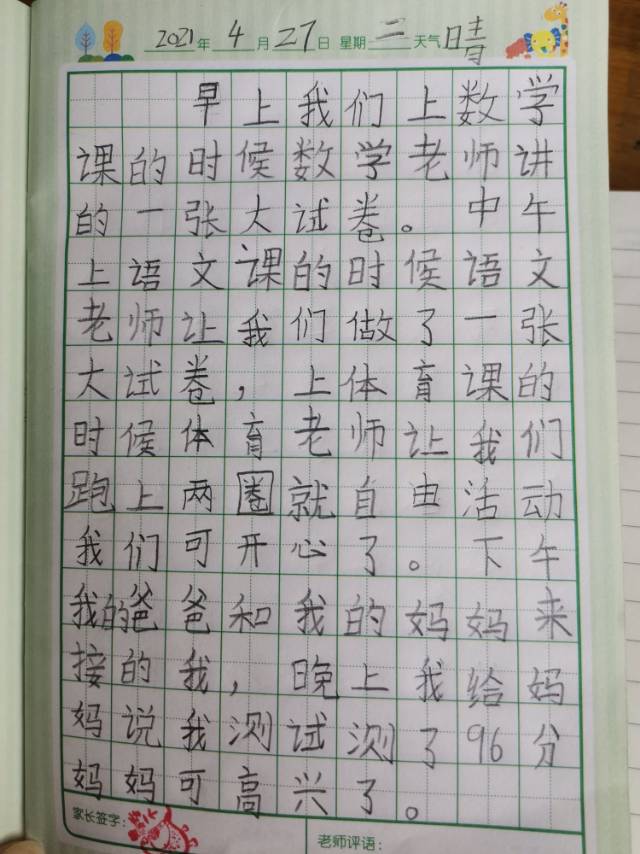 2021年4月27日 星期二天气晴
早上我们上数学
课的时候数学老师讲
的一张大试卷。中午
上语文课的时候语文
老师让我们做了一张
大试卷，上体育课的
时候体育老师让我们
跑上两圈就自由活动
我们可开心了。下午
我的爸爸和我的妈妈来
接的我，晚上我给妈
妈说我测试测了96分
妈妈可高兴了。
家长签字：
老师评语：